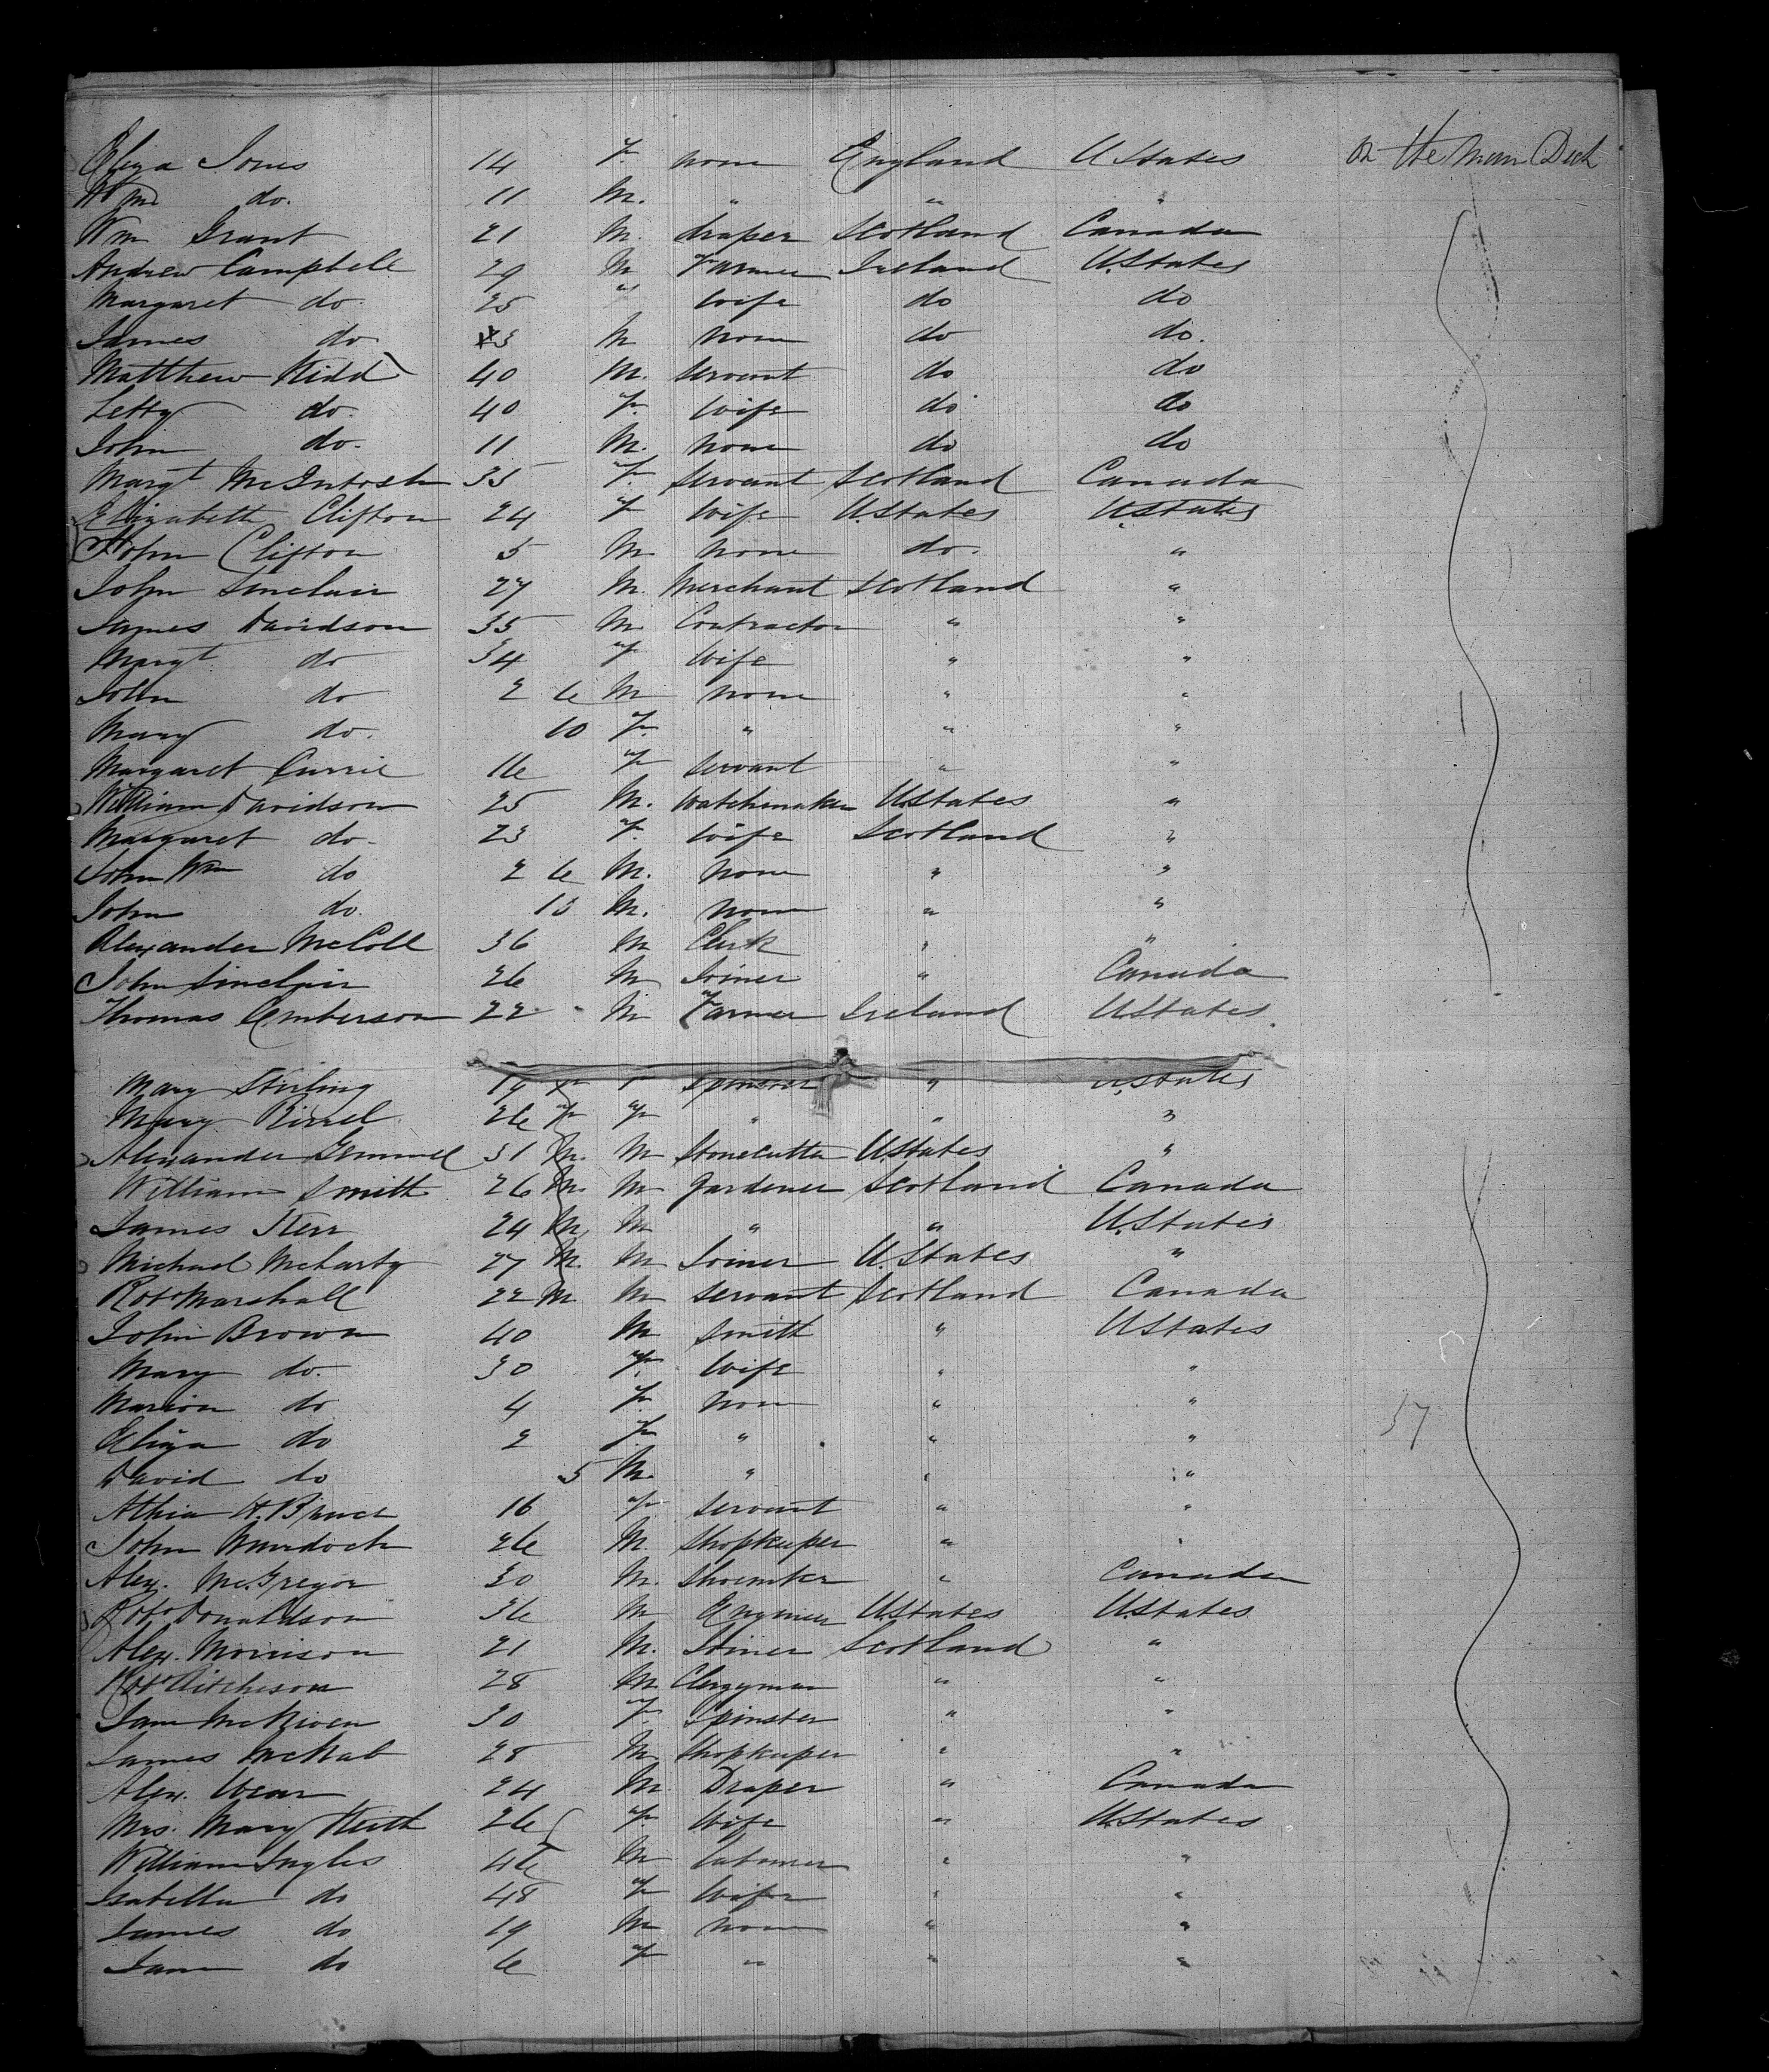 Eliza Jones 14 F. none England U States On the Main Deck
Wm do. 11 M. " " "
Wm Grant 21 M. draper Scotland Canada
Andrew Campbell 29 M Farmer Ireland U.States
Margaret do. 25 " wife do do
James do 3 M none do do.
Matthew Kidd 40 M. servant do do
Letty do. 40 F. wife do do
John do. 11 M. none do do
Margt McIntosh 35 F. servant Scotland Canada
Elizabeth Clifton 24 F wife U.States U.States
John Clifton 5 M. none do. "
John Sinclair 27 M. Merchant Scotland "
James Davidson 35 M Contractor " "
Margt do 34 F wife " "
John do 2 6 M none " "
Mary do. 10 F. " " "
Margaret Currie 16 F servant " "
William Davidson 25 M. Watchmaker U.States "
Margaret do. 23 F. wife Scotland "
John Wm do 2 6 M. none " "
John do 10 M. none " "
Alexander McColl 36 M Clerk " "
John Sinclair 26 M Joiner " Canada
Thomas Emberson 22 M Farmer Ireland U.States.
Mary Stirling 19 F F " U.States
Mary Birrel 26 F F " " "
Alexander Gemmel 31 M. M Stonecutter U.States "
William Smith 26 M. M gardener Scotland Canada
James Kerr 24 M. M " " U.States
Michael McCarty 27 M. M Joiner U.States "
Robt Marshall 22 M M servant Scotland Canada
John Brown 40 M smith " U States
Mary do. 30 F. wife " "
Marion do 4 F. none " "
Eliza do 2 F " " "
David do 5 M. " " "
16 F servant " "
John Murdoch 26 M. Shopkeeper " "
Alex. McGregor 30 M. Shoemkr " Canada
Robt Donaldson 36 M Engineer U.States U.States
Alex. Morrison 21 M. Joiner Scotland "
Robt Aitcheson 28 M Clergyman " "
Jane McNiven 30 F. Spinster " "
James McNab 28 M. Shopkeeper " "
Alex. Wear 24 M. Draper " Canada
Mrs. Mary Keith 26 F wife " U.States
William Ingles 46 M labourer " "
Isabella do 48 F wife " "
James do 19 M none " "
Jane do 6 F " " "
37